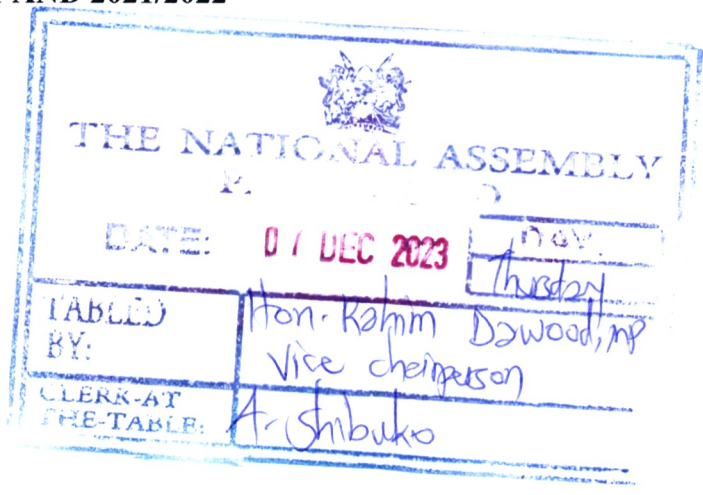 AND 2021/2022
THE NATIONAL ASSEMBLY
DATE: 07 DEC 2023 DAY
Thursday
TABLED BY: Hon. Rahim Dawood, MP
Vice chairperson
CLERK-AT THE-TABLE: A. Shibuko